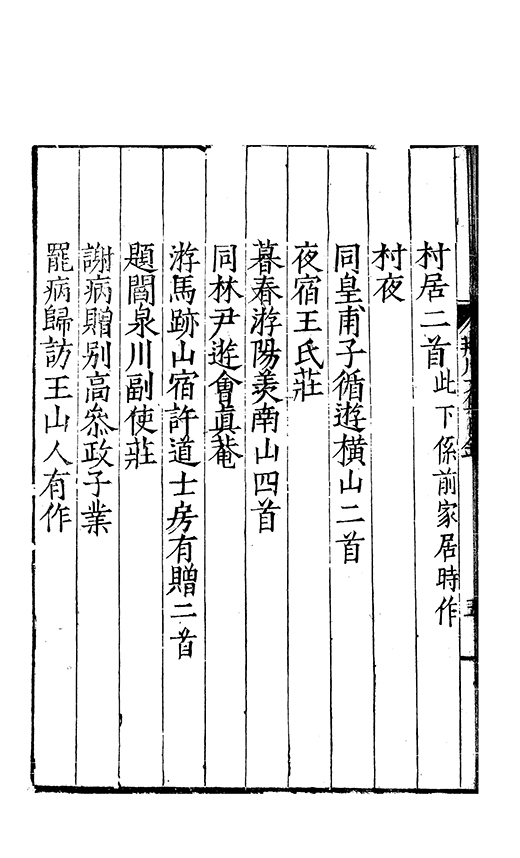 村居二首此下係前家居時作
村夜
同皇甫子循遊橫山二首
夜宿王氏莊
暮春游陽羨南山四首
同林尹遊會真菴
游馬跡山宿許道士房有贈二首
題閻泉川副使莊
謝病贈别高叅政子業
罷病歸訪王山人有作